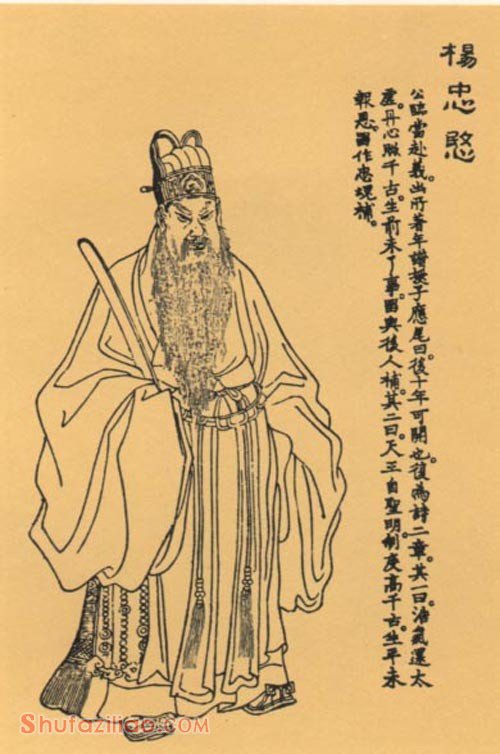 楊忠愍
公臨當赴義。出所著年譜授子應尾曰後十年可開也。復為詩二章。其一曰浩氣還太
虛。丹心照千古。生前未了事。留與後人補。其二曰。天王自聖明。制度高千古。生平未
報恩。留作忠魂補。
Shufaziliao.com